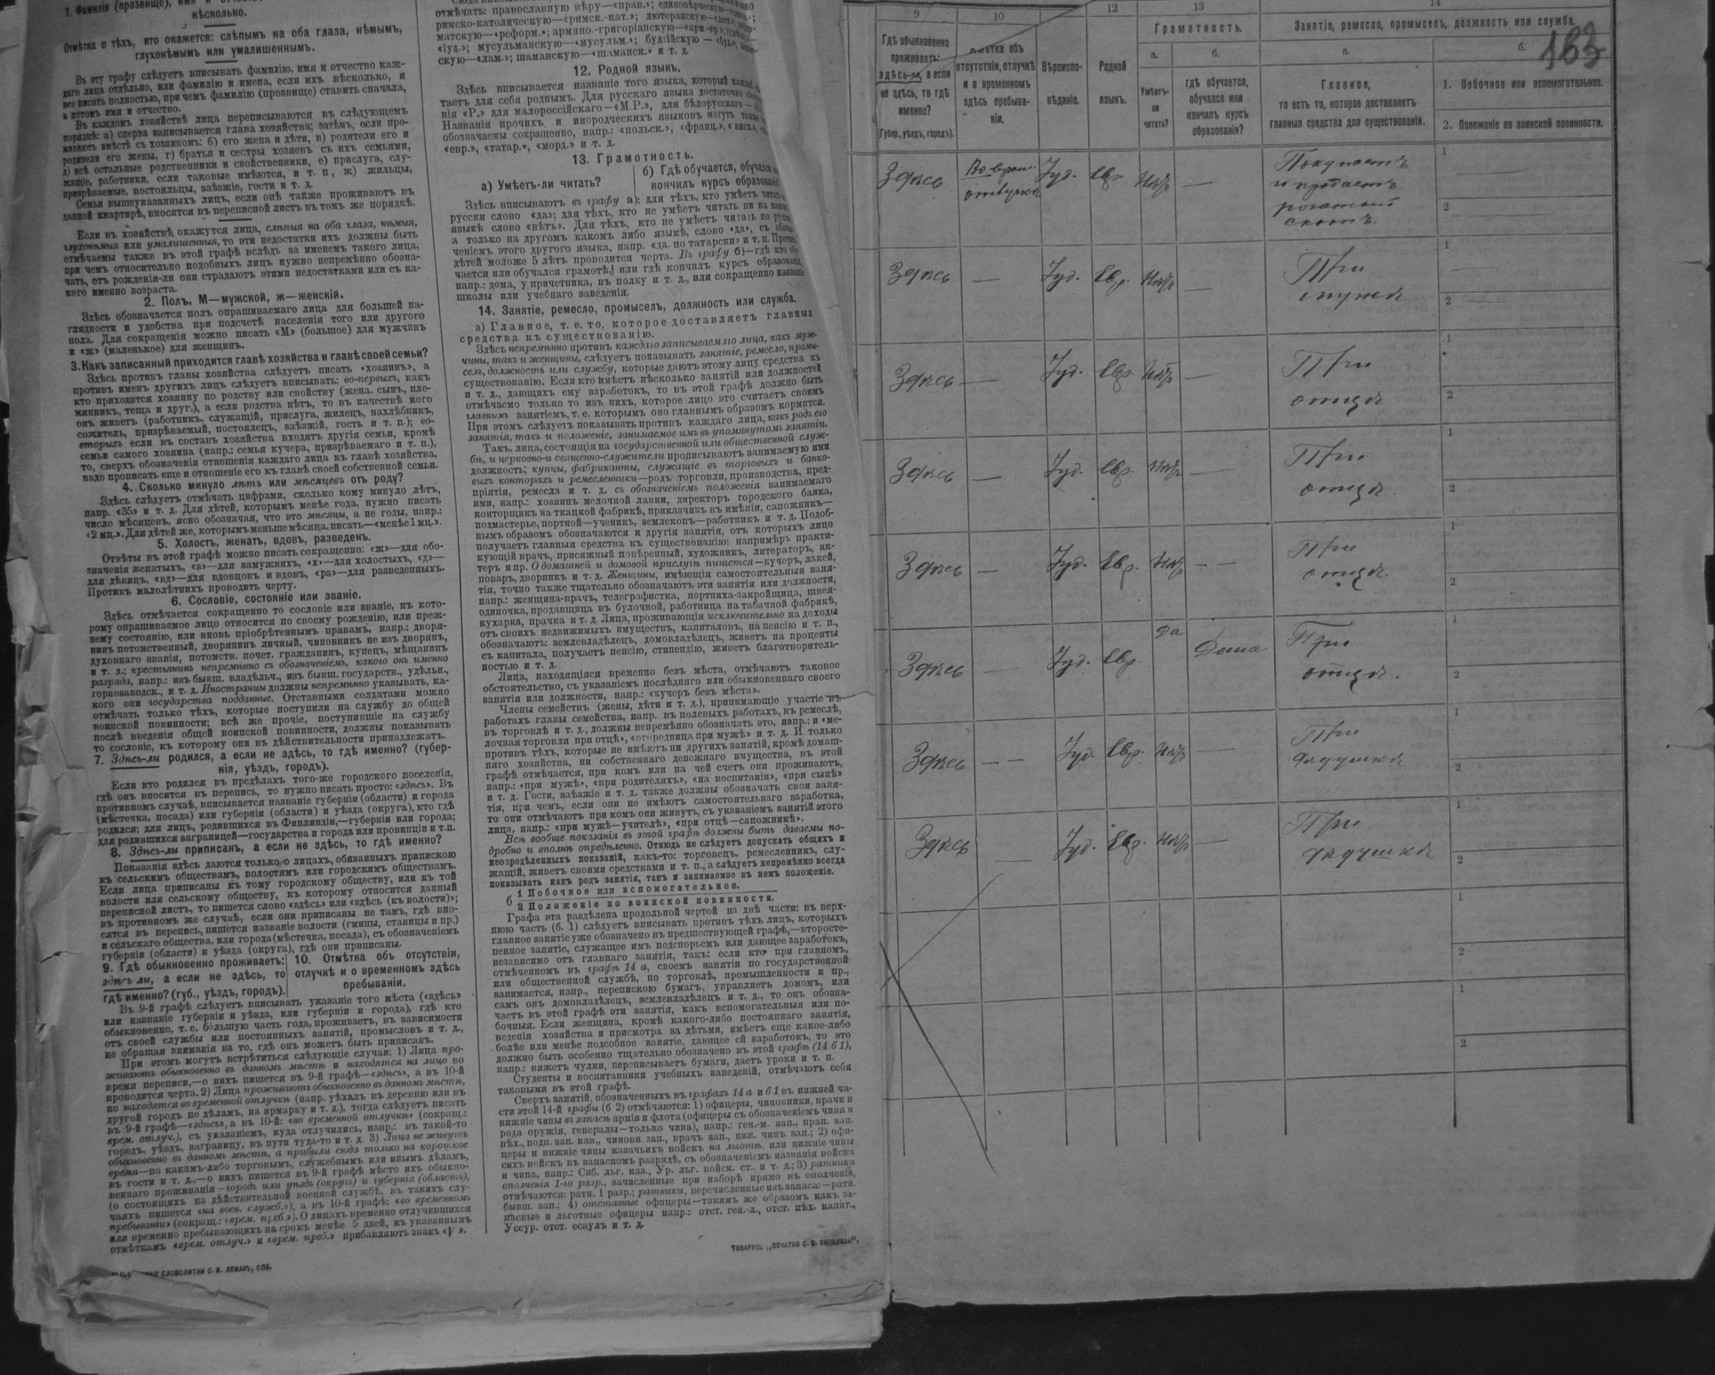 нѣсколько.
Отмѣтка о тѣхъ, кто окажется: слѣпымъ на оба глаза, нѣмымъ,
глухонѣмымъ или умалишеннымъ.
Въ эту графу слѣдуетъ вписывать фамилію, имя и отчество каж-
даго лица отдѣльно, или фамилію и имена, если ихъ нѣсколько, и
все писать полностью, при чемъ фамилію (прозвище) ставить сначала,
а потомъ имя и отчество.
Въ каждомъ хозяйствѣ лица переписываются въ слѣдующемъ
порядкѣ: а) сперва записывается глава хозяйства; затѣмъ, если про-
живаютъ вмѣстѣ съ хозяиномъ: б) его жена и дѣти, в) родители его и
родители его жены, г) братья и сестры хозяевъ съ ихъ семьями,
д) всѣ остальные родственники и свойственники, е) прислуга, слу-
жащіе, работники, если таковые имѣются, и т. п., ж) жильцы,
призрѣваемые, постояльцы, заѣзжіе, гости и т. д.
Семьи вышеуказанныхъ лицъ, если онѣ также проживаютъ въ
данной квартирѣ, вносятся въ переписной листъ въ томъ же порядкѣ.
Если въ хозяйствѣ окажутся лица, слѣпыя на оба глаза, нѣмыя,
глухонѣмыя или умалишенныя, то эти недостатки ихъ должны быть
отмѣчаемы также въ этой графѣ вслѣдъ за именемъ такого лица,
при чемъ относительно подобныхъ лицъ нужно непремѣнно обозна-
чать, отъ рожденія-ли они страдаютъ этими недостатками или съ ка-
кого именно возраста.
2. Полъ. М—мужской, ж—женскій.
Здѣсь обозначается полъ опрашиваемаго лица для большей на-
глядности и удобства при подсчетѣ населенія того или другого
пола. Для сокращенія можно писать «М» (большое) для мужчинъ
и «ж» (маленькое) для женщинъ.
3. Какъ записанный приходится главѣ хозяйства и главѣ своей семьи?
Здѣсь противъ главы хозяйства слѣдуетъ писать «хозяинъ», а
противъ именъ другихъ лицъ слѣдуетъ вписывать: во-первыхъ, какъ
кто приходится хозяину по родству или свойству (жена, сынъ, пле-
мянникъ, теща и друг.), а если родства нѣтъ, то въ качествѣ кого
онъ живетъ (работникъ, служащій, прислуга, жилецъ, нахлѣбникъ,
сожитель, призрѣваемый, постоялецъ, заѣзжій, гость и т. п.); во-
вторыхъ если въ составъ хозяйства входятъ другія семьи, кромѣ
семьи самого хозяина (напр.: семья кучера, призрѣваемаго и т. п.),
то, сверхъ обозначенія отношенія каждаго лица къ главѣ хозяйства,
надо прописать еще и отношеніе его къ главѣ своей собственной семьи.
4. Сколько минуло лѣтъ или мѣсяцевъ отъ роду?
Здѣсь слѣдуетъ отмѣчать цифрами, сколько кому минуло лѣтъ,
напр. «35» и т. д. Для дѣтей, которымъ менѣе года, нужно писать
число мѣсяцевъ, ясно обозначая, что это мѣсяцы, а не годы, напр.:
«2 мц.». Для дѣтей же, которымъ меньше мѣсяца, писать—«менѣе 1 мц.».
5. Холостъ, женатъ, вдовъ, разведенъ.
Отвѣты въ этой графѣ можно писать сокращенно: «ж»—для обо-
значенія женатыхъ, «з»—для замужнихъ, «х»—для холостыхъ, «д»—
для дѣвицъ, «вд»—для вдовцовъ и вдовъ, «ра»—для разведенныхъ.
Противъ малолѣтнихъ проводить черту.
6. Сословіе, состояніе или званіе.
Здѣсь отмѣчается сокращенно то сословіе или званіе, къ кото-
рому опрашиваемое лицо относится по своему рожденію, или преж-
нему состоянію, или вновь пріобрѣтеннымъ правамъ, напр.: дворя-
нинъ потомственный, дворянинъ личный, чиновникъ не изъ дворянъ,
духовнаго званія, потомств. почет. гражданинъ, купецъ, мѣщанинъ
и т. д.; крестьянинъ непремѣнно съ обозначеніемъ, какого онъ именно
разряда, напр.: изъ бывш. владѣльч., изъ бывш. государств., удѣльн.,
горнозаводск., и т. д. Иностранцы должны непремѣнно указывать, ка-
кого они государства подданные. Отставными солдатами можно
отмѣчать только тѣхъ, которые поступили на службу до общей
воинской повинности; всѣ же прочіе, поступившіе на службу
послѣ введенія общей воинской повинности, должны показывать
то сословіе, къ которому они въ дѣйствительности принадлежатъ.
7. Здѣсь-ли родился, а если не здѣсь, то гдѣ именно? (губер-
нія, уѣздъ, городъ).
Если кто родился въ предѣлахъ того-же городского поселенія,
гдѣ онъ вносится въ перепись, то нужно писать просто: «здѣсь». Въ
противномъ случаѣ, вписывается названіе губерніи (области) и города
(мѣстечка, посада) или губерніи (области) и уѣзда (округа), кто гдѣ
родился; для лицъ, родившихся въ Финляндіи,—губерніи или города;
для родившихся заграницей—государства и города или провинціи и т.п.
8. Здѣсь-ли приписанъ, а если не здѣсь, то гдѣ именно?
Показанія здѣсь даются только о лицахъ, обязанныхъ припискою
къ сельскимъ обществамъ, волостямъ или городскимъ обществамъ.
Если лица приписаны къ тому городскому обществу, или къ той
волости или сельскому обществу, къ которому относится данный
переписной листъ, то пишется слово «здѣсь» или «здѣсь (къ волости)»;
въ противномъ же случаѣ, если они приписаны не тамъ, гдѣ вно-
сятся въ перепись, пишется названіе волости (гмины, станицы и пр.)
и сельскаго общества, или города (мѣстечка, посада), съ обозначеніемъ
губерніи (области) и уѣзда (округа), гдѣ они приписаны.
9. Гдѣ обыкновенно проживаетъ:
здѣсь ли, а если не здѣсь, то
гдѣ именно? (губ., уѣздъ, городъ).
10. Отмѣтка объ отсутствіи,
отлучкѣ и о временномъ здѣсь
пребываніи.
Въ 9-й графѣ слѣдуетъ вписывать указаніе того мѣста («здѣсь»
или названіе губерніи и уѣзда, или губерніи и города), гдѣ кто
обыкновенно, т. е. большую часть года, проживаетъ, въ зависимости
отъ своей службы или постоянныхъ занятій, промысловъ и т. д.,
не обращая вниманія на то, гдѣ онъ можетъ быть приписанъ.
При этомъ могутъ встрѣтиться слѣдующіе случаи: 1) Лица про-
живаютъ обыкновенно въ данномъ мѣстѣ и находятся на лицо во
время переписи,—о нихъ пишется въ 9-й графѣ—«здѣсь», а въ 10-й
проводится черта. 2) Лица проживаютъ обыкновенно въ данномъ мѣстѣ,
но находятся во временной отлучкѣ (напр. уѣхалъ въ деревню или въ
другой городъ по дѣламъ, на ярмарку и т. д.), тогда слѣдуетъ писать
въ 9-й графѣ—«здѣсь», а въ 10-й: «во временной отлучкѣ» (сокращ.:
врем. отлуч.), съ указаніемъ, куда отлучились, напр.: въ такой-то
городъ, уѣздъ, заграницу, въ пути туда-то и т. д. 3) Лица не живутъ
обыкновенно въ данномъ мѣстѣ, а прибыли сюда только на короткое
время—по какимъ-либо торговымъ, служебнымъ или инымъ дѣламъ,
въ гости и т. д.,—о нихъ пишется въ 9-й графѣ мѣсто ихъ обыкно-
веннаго проживанія—городъ или уѣздъ (округъ) и губернія (область),
(о состоящихъ на дѣйствительной военной службѣ, въ такихъ слу-
чаяхъ пишется «на воен. службѣ»), а въ 10-й графѣ: «во временномъ
пребываніи» (сокращ.: «врем. преб.»). О лицахъ временно отлучившихся
или временно пребывающихъ на срокъ менѣе 5 дней, къ указаннымъ
отмѣткамъ «врем. отлуч.» и «врем. преб.» прибавляютъ знакъ «V».
СЛОВОЛИТНИ О. И. ЛЕМАНЪ, СПБ.
отмѣчать: православную вѣру—«прав.»;
римско-католическую—«римск.-кат.»; лютеранскую—
матскую—«реформ.»; армяно-григоріанскую—
«іуд.»; мусульманскую—«мусульм.»; буддійскую—
скую—«лам.»; шаманскую—«шаманск.» и т. д.
12. Родной языкъ.
Здѣсь вписывается названіе того языка, который
таетъ для себя роднымъ. Для русскаго языка достаточно
нія «Р.,» для малороссійскаго—«М.Р.», для бѣлорусскаго—
Названія прочихъ и инородческихъ языковъ могутъ
обозначаемы сокращенно, напр.: «польск.», «франц.»,
«евр.», «татар.», «морд.» и т. д.
13. Грамотность.
а) Умѣетъ-ли читать?
б) Гдѣ обучается, обучался
кончилъ курсъ образованія
Здѣсь вписываютъ въ графу а): для тѣхъ, кто умѣетъ
русски слово «да»; для тѣхъ, кто не умѣетъ читать ни на
языкѣ слово «нѣтъ». Для тѣхъ, кто не умѣетъ читать по
а только на другомъ какомъ либо языкѣ, слово «да», съ
ченіемъ этого другого языка, напр. «да, по татарски» и т. п.
дѣтей моложе 5 лѣтъ проводится черта. Въ графу б)—гдѣ кто
чается или обучался грамотѣ, или гдѣ кончилъ курсъ
напр.: дома, у причетника, въ полку и т. д., или сокращенно
школы или учебнаго заведенія.
14. Занятіе, ремесло, промыселъ, должность или служба.
а) Главное, т. е. то, которое доставляетъ главныя
средства къ существованію.
Здѣсь непремѣнно противъ каждаго записываемаго лица, какъ муж-
чины, такъ и женщины, слѣдуетъ показывать занятіе, ремесло, промы-
селъ, должность или службу, которые даютъ этому лицу средства къ
существованію. Если кто имѣетъ нѣсколько занятій или должностей
и т. д., дающихъ ему заработокъ, то въ этой графѣ должно быть
отмѣчаемо только то изъ нихъ, которое лицо это считаетъ своимъ
главнымъ занятіемъ, т. е. которымъ оно главнымъ образомъ кормится.
При этомъ слѣдуетъ показывать противъ каждаго лица, какъ родъ его
занятія, такъ и положеніе, занимаемое имъ въ упомянутомъ занятіи.
Такъ, лица, состоящія на государственной или общественной служ-
бѣ, и церковно-и священно-служители прописываютъ занимаемую ими
должность; купцы, фабриканты, служащіе въ торговыхъ и банко-
выхъ конторахъ и ремесленники—родъ торговли, производства, пред-
пріятія, ремесла и т. д. съ обозначеніемъ положенія занимаемаго
ими, напр.: хозяинъ мелочной лавки, директоръ городского банка,
конторщикъ на ткацкой фабрикѣ, приказчикъ въ имѣніи, сапожникъ—
подмастерье, портной—ученикъ, землекопъ—работникъ и т. д. Подоб-
нымъ образомъ обозначаются и другія занятія, отъ которыхъ лицо
получаетъ главныя средства къ существованію: напримѣръ практи-
кующій врачъ, присяжный повѣренный, художникъ, литераторъ, ак-
теръ и пр. О домашней и домовой прислугѣ пишется—кучеръ, лакей,
поваръ, дворникъ и т. д. Женщины, имѣющія самостоятельныя заня-
тія, точно также тщательно обозначаютъ эти занятія или должности,
напр.: женщина-врачъ, телеграфистка, портниха-закройщица, швея-
одиночка, продавщица въ булочной, работница на табачной фабрикѣ,
кухарка, прачка и т. д. Лица, проживающія исключительно на доходы
отъ своихъ недвижимыхъ имуществъ, капиталовъ, на пенсію и т. п.,
обозначаютъ: землевладѣлецъ, домовладѣлецъ, живетъ на проценты
съ капитала, получаетъ пенсію, стипендію, живетъ благотворитель-
ностью и т. д.
Лица, находящіяся временно безъ мѣста, отмѣчаютъ таковое
обстоятельство, съ указаніемъ послѣдняго или обыкновеннаго своего
занятія или должности, напр.: «кучеръ безъ мѣста».
Члены семействъ (жены, дѣти и т. д.), принимающіе участіе въ
работахъ главы семейства, напр. въ полевыхъ работахъ, въ ремеслѣ,
въ торговлѣ и т. д., должны непремѣнно обозначать это, напр.: и «ме-
лочная торговля при отцѣ», «огородница при мужѣ» и т. д. И только
противъ тѣхъ, которые не имѣютъ ни другихъ занятій, кромѣ домаш-
няго хозяйства, ни собственнаго денежнаго имущества, въ этой
графѣ отмѣчается, при комъ или на чей счетъ они проживаютъ,
напр.: «при мужѣ», «при родителяхъ», «на воспитаніи», «при сынѣ»
и т. д. Гости, заѣзжіе и т. д. также должны обозначать свои заня-
тія, при чемъ, если они не имѣютъ самостоятельнаго заработка,
то они отмѣчаютъ при комъ они живутъ, съ указаніемъ занятій этого
лица, напр.: «при мужѣ—учителѣ», «при отцѣ—сапожникѣ».
Всѣ вообще показанія въ этой графѣ должны быть даваемы по-
дробно и вполнѣ опредѣленно. Отнюдь не слѣдуетъ допускать общихъ и
неопредѣленныхъ показаній, какъ-то: торговецъ, ремесленникъ, слу-
жащій, живетъ своими средствами и т. п., а слѣдуетъ непремѣнно всегда
показывать какъ родъ занятія, такъ и занимаемое въ немъ положеніе.
б 1 Побочное или вспомогательное.
2 Положеніе по воинской повинности.
Графа эта раздѣлена продольной чертой на двѣ части: въ верх-
нюю часть (б. 1) слѣдуетъ вписывать противъ тѣхъ лицъ, которыхъ
главное занятіе уже обозначено въ предшествующей графѣ,—второсте-
пенное занятіе, служащее имъ подспорьемъ или дающее заработокъ,
независимо отъ главнаго занятія, такъ: если кто при главномъ,
отмѣченномъ въ графѣ 14 а, своемъ занятіи по государственной
или общественной службѣ, по торговлѣ, промышленности и пр.,
занимается, напр., перепискою бумагъ, управляетъ домомъ, или
самъ онъ домовладѣлецъ, землевладѣлецъ и т. д., то онъ обозна-
чаетъ въ этой графѣ эти занятія, какъ вспомогательныя или по-
бочныя. Если женщина, кромѣ какого-либо постояннаго занятія,
веденія хозяйства и присмотра за дѣтьми, имѣетъ еще какое-либо
болѣе или менѣе подсобное занятіе, дающее ей заработокъ, то это
должно быть особенно тщательно обозначено въ этой графѣ (14 б 1),
напр.: вяжетъ чулки, переписываетъ бумаги, даетъ уроки и т. п.
Студенты и воспитанники учебныхъ заведеній, отмѣчаютъ себя
таковыми въ этой графѣ.
Сверхъ занятій, обозначенныхъ въ графахъ 14 а и б 1 въ нижней ча-
сти этой 14-й графы (б 2) отмѣчаются: 1) офицеры, чиновники, врачи и
нижніе чины въ запасѣ арміи и флота (офицеры съ обозначеніемъ чина и
рода оружія, генералы—только чина), напр.: ген.-м. зап., прап. зап.
пѣх., подп. зап. кав., чиновн. зап., врачъ зап., ниж. чинъ зап.; 2) офи-
церы и нижніе чины казачьихъ войскъ на льготѣ, или нижніе чины
сихъ войскъ въ запасномъ разрядѣ, съ обозначеніемъ названія войска
и чина, напр.: Сиб. льг. каз., Ур. льг. войск. ст., и т. д.; 3) ратники
ополченія 1-го разр., зачисленные при наборѣ прямо въ ополченіи,
отмѣчаются: ратн. 1 разр.; ратники, перечисленные изъ запаса:—ратн.
бывш. зап.; 4) отставные офицеры—такимъ же образомъ какъ за-
пасные и льготные офицеры напр.: отст. ген.-л., отст. пѣх. капит.,
Уссур. отст. есаулъ и т. д.
163
9 10 12 13 14
Гдѣ обыкновенно
проживаетъ:
здѣсь-ли, а если
не здѣсь, то гдѣ
именно?
(Губер., уѣздъ, городъ).
объ
отсутствіи, отлучкѣ
и о временномъ
здѣсь пребыва-
ніи.
Вѣроиспо-
вѣданіе.
Родной
языкъ.
Грамотность.
а.
Умѣетъ-
ли
читать?
б.
гдѣ обучается,
обучался или
кончилъ курсъ
образованія?
Занятіе, ремесло, промыселъ, должность или служба.
а.
Главное,
то есть то, которое доставляетъ
главныя средства для существованія.
б.
1. Побочное или вспомогательное.
2. Положеніе по воинской повинности.
Здѣсь Во врем. Іуд. Евр. Нѣтъ — Покупаетъ 1
отлучкѣ и продаетъ
рогатый 2
скотъ.
Здѣсь — Іуд. Евр. Нѣтъ — При 1
мужѣ 2
Здѣсь — Іуд. Евр. Нѣтъ — При 1
отцѣ 2
Здѣсь — Іуд. Евр. Нѣтъ — При 1
отцѣ 2
Здѣсь — Іуд. Евр. Нѣтъ — При 1
отцѣ 2
Здѣсь — Іуд. Евр. Да Дома При 1
отцѣ. 2
Здѣсь — Іуд. Евр. Нѣтъ — При 1
дѣдушкѣ 2
Здѣсь — Іуд. Евр. Нѣтъ — При 1
дѣдушкѣ 2
1
2
1
2